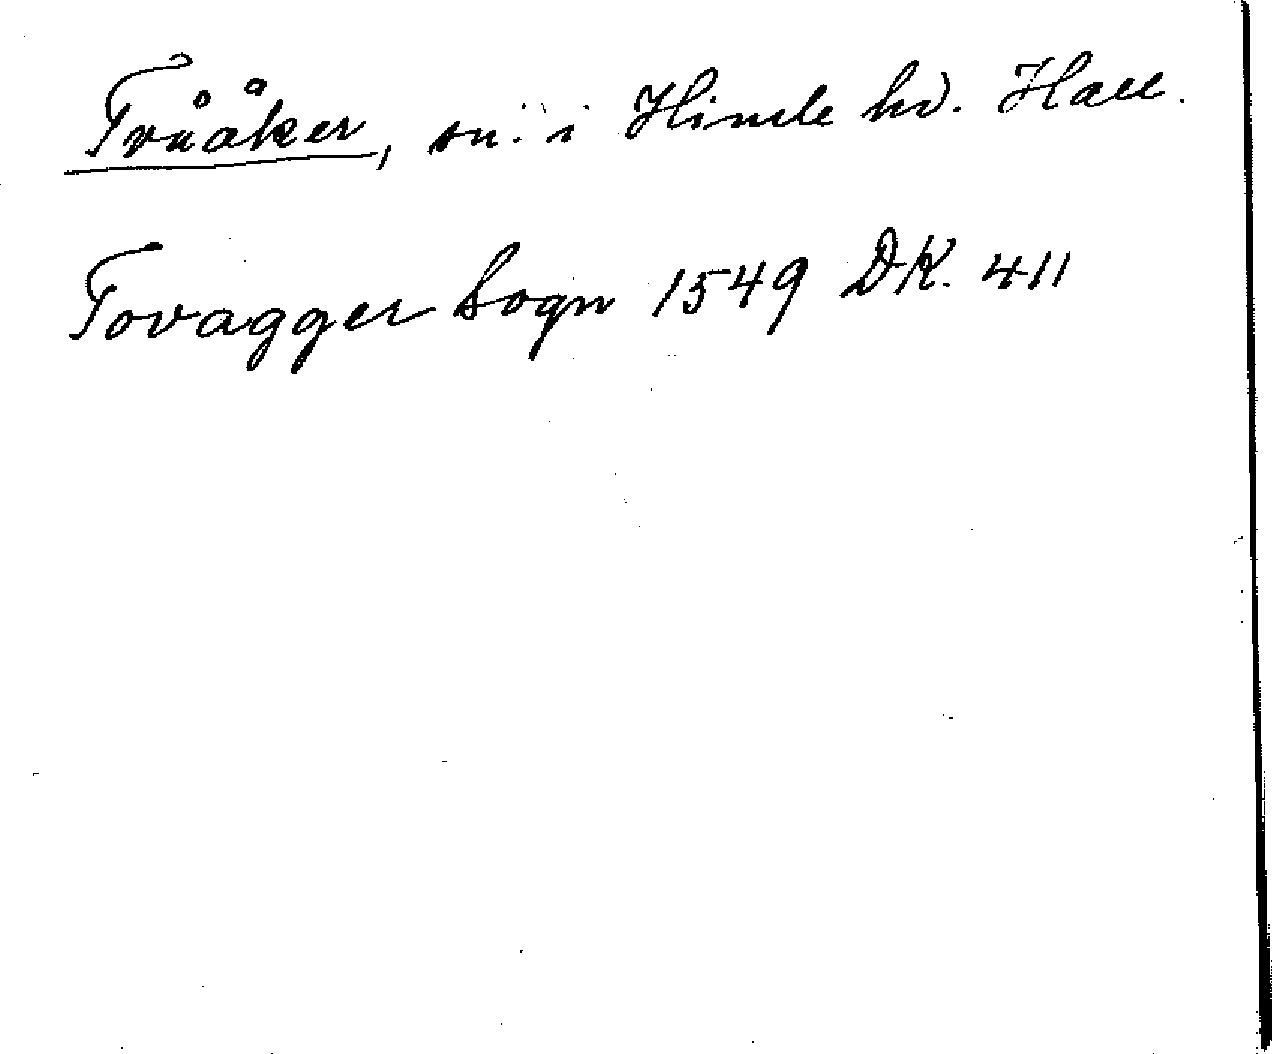 Tvååker, sn. i Himle hd. Hall.
Tovagger Sogn 1549 DK. 411